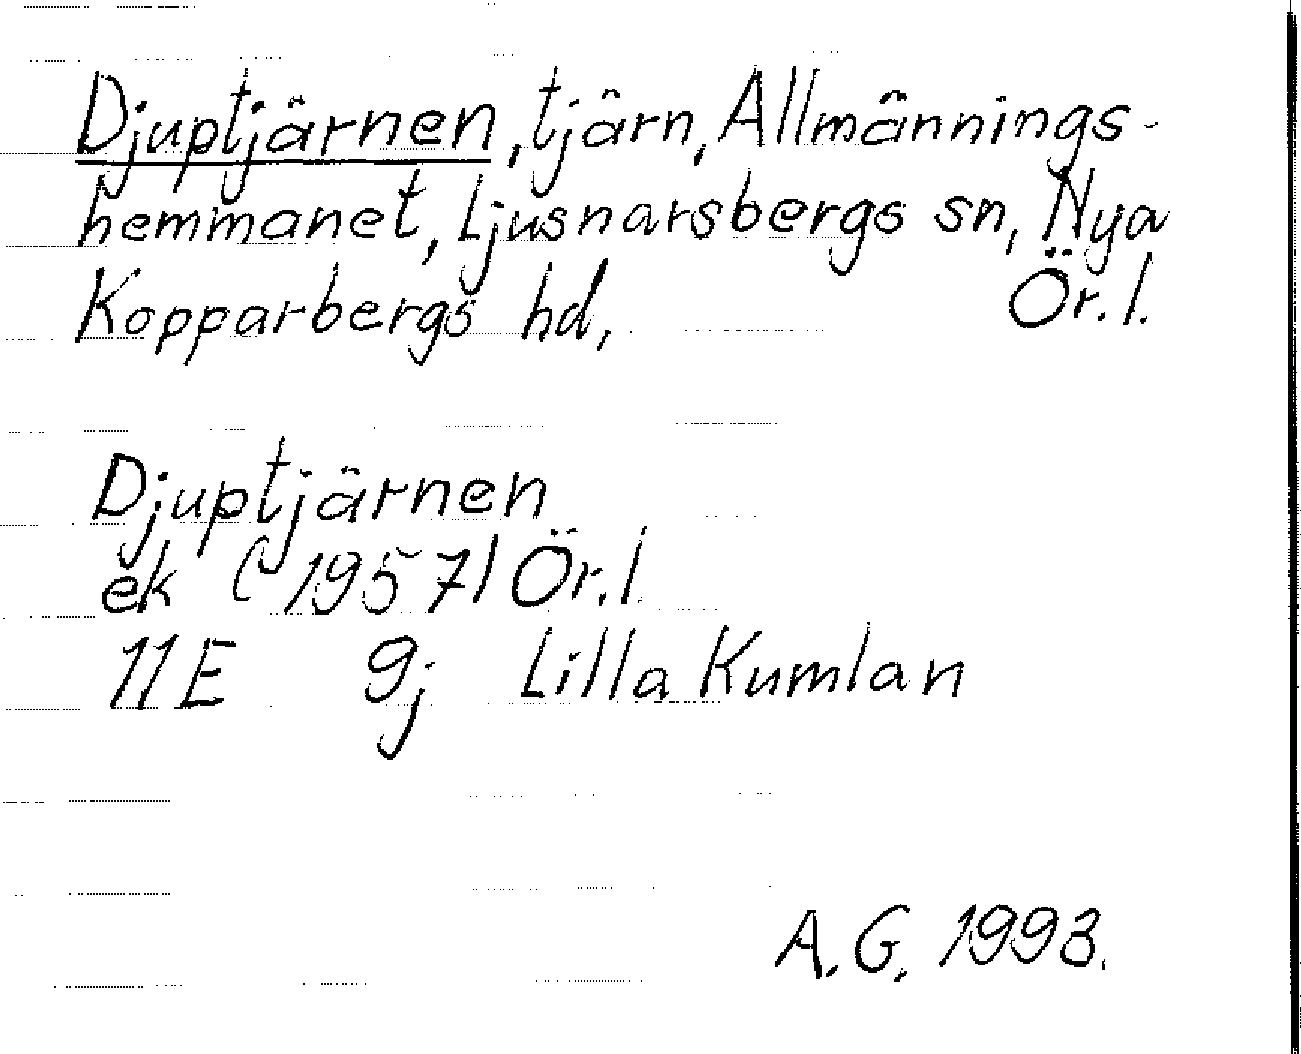 Djuptjärnen, tjärn, Allmännings-
hemmanet, Ljusnarsbergs sn, Nya
Kopparbergs hd, Ör. l.
Djuptjärnen
ek (1957) Ör. l.
11E 9j Lilla Kumlan
A.G. 1993.